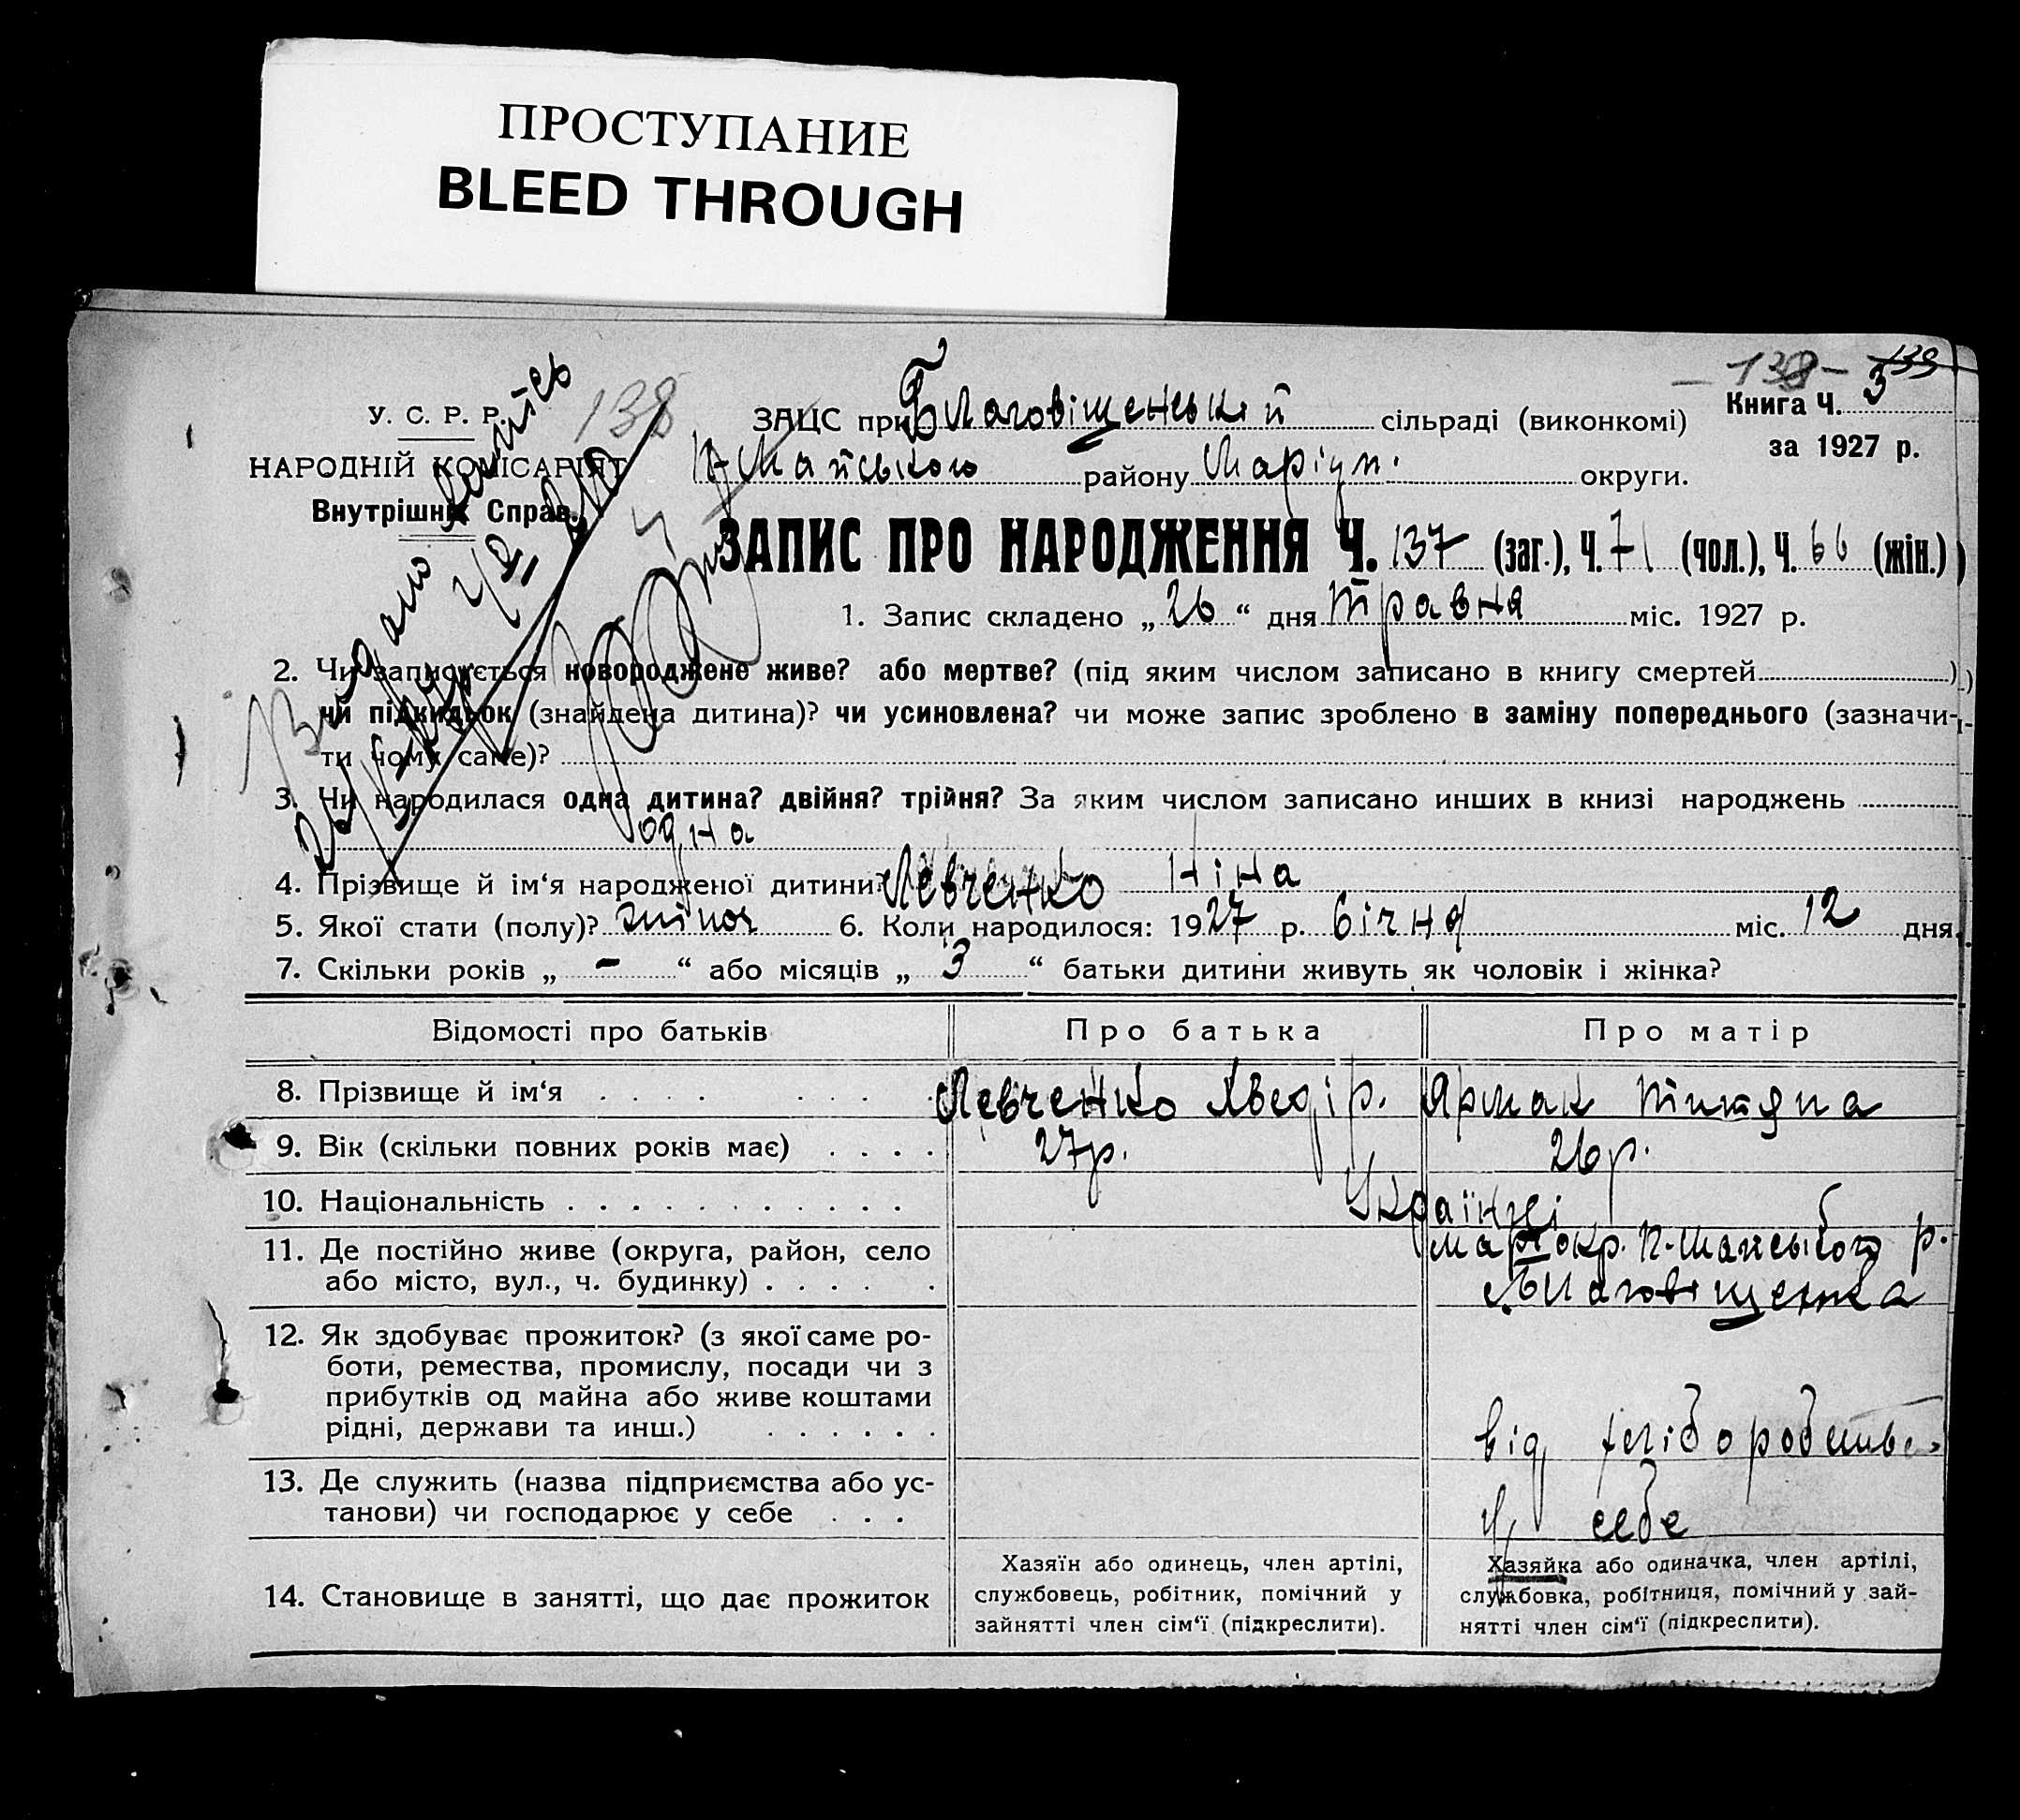 ПРОСТУПАНИЕ
BLEED THROUGH
-138- 139
У. С. Р. Р.
НАРОДНІЙ КОМІСАРІЯТ
Внутрішніх Справ.
138
Видано
ЗАЦС при Благовіщенській сільраді (виконкомі)
Книга Ч. 3
за 1927 р.
П-Майського району Маріуп. округи.
ЗАПИС ПРО НАРОДЖЕННЯ Ч. 137 (заг.), Ч. 71 (чол.), Ч. 66 (жін.)
1. Запис складено „ 26 “ дня травня міс. 1927 р.
2. Чи записується новороджене живе? або мертве? (під яким числом записано в книгу смертей )
чи підкидьок (знайдена дитина)? чи усиновлена? чи може запис зроблено в заміну попереднього (зазначи-
ти чому саме)?
3. Чи народилася одна дитина? двійня? трійня? За яким числом записано инших в книзі народжень
одна
4. Прізвище й ім‘я народженої дитини? Левченко Ніна
5. Якої стати (полу)? жіноч 6. Коли народилося: 1927 р. січня міс. 12 дня.
7. Скільки років „ - “ або місяців „ 3 “ батьки дитини живуть як чоловік і жінка?
Відомості про батьків Про батька Про матір
8. Прізвище й ім‘я Левченко Хведір. Ярмак Титяна
9. Вік (скільки повних років має) 27р. 26р.
10. Національність Українці
11. Де постійно живе (округа, район, село
або місто, вул., ч. будинку)
Мар. окр. П-Майського р.
Благовіщенка
12. Як здобуває прожиток? (з якої саме ро-
боти, ремества, промислу, посади чи з
прибутків од майна або живе коштами
рідні, держави та инш.)
від
13. Де служить (назва підприємства або ус-
танови) чи господарює у себе
у себе
14. Становище в занятті, що дає прожиток
Хазяїн або одинець, член артілі,
службовець, робітник, помічний у
зайнятті член сім‘ї (підкреслити).
Хазяйка або одиначка, член артілі,
службовка, робітниця, помічний у зай-
нятті член сім‘ї (підкреслити).